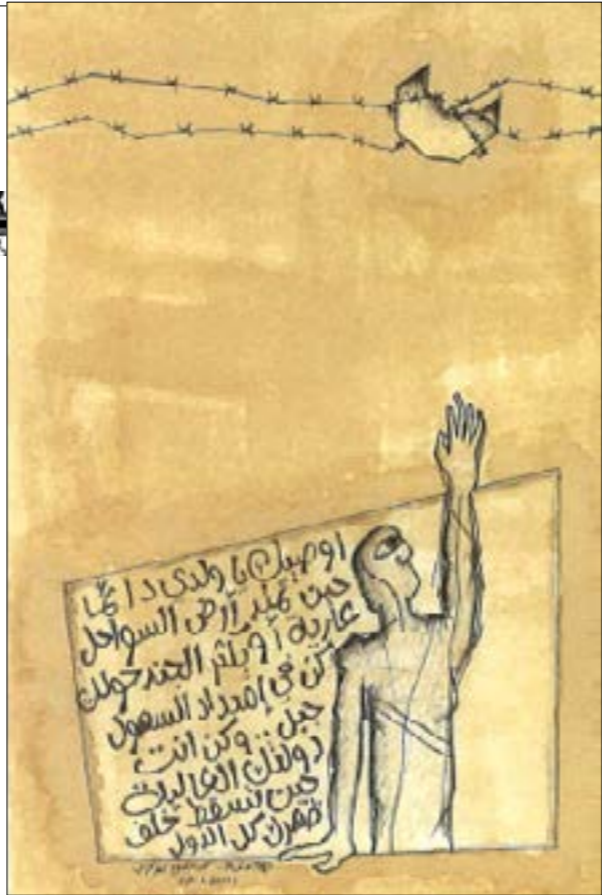 اوصيك يا ولدي دائماً
حين تميد أرض السواحل
عارية أو يلثم الجند حولك
كن في إمتداد السهول
جبل .. وكن انت
دولتك الغالية
حين تسقط خلف
ظهرك كل الدول